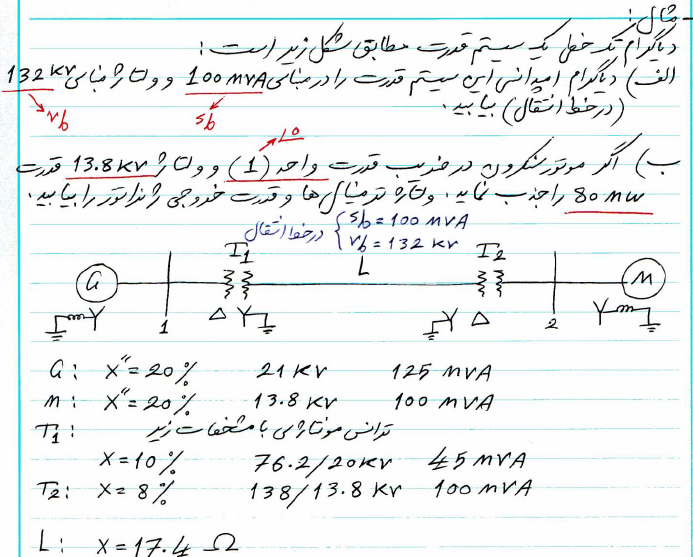 مثال:
دیاگرام تک خطی یک سیستم قدرت مطابق شکل زیر است:
الف) دیاگرام امپدانس این سیستم قدرت را در مبنای 100 MVA و ولتاژ مبنای 132 KV
Sb Vb
(در خط انتقال) بیابید.
1∠0
ب) اگر موتور سنکرون در ضریب قدرت واحد (1) و ولتاژ 13.8 KV قدرت
80 MW را جذب نماید. ولتاژ ترمینال ها و قدرت خروجی ژنراتور را بیابید.
در خط انتقال { Sb = 100 MVA
Vb = 132 KV
T1 L T2
G M
Y Δ Y Y Δ Y
1 2
G: X" = 20% 21 KV 125 MVA
M: X" = 20% 13.8 KV 100 MVA
T1: ترانس مونتاژی با مشخصات زیر
X = 10% 76.2/20 KV 45 MVA
T2: X = 8% 138/13.8 KV 100 MVA
L: X = 17.4 Ω